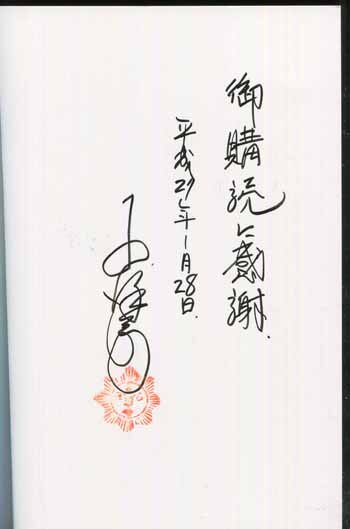 御購読に感謝.
平成27年1月28日.